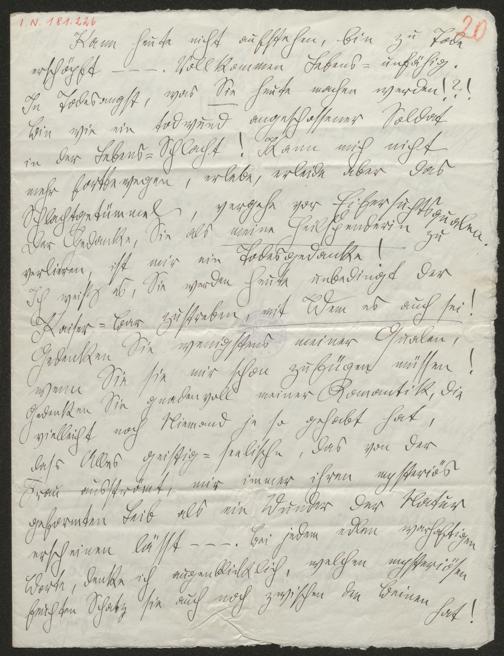 I.N. 181.226
20
Kann heute nicht aufstehen, bin zu Tode
erschöpft — — —. Vollkommen Lebens=unfähig.
In Todesangst, was Sie heute machen werden!?!
Bin wie ein todwund angeschossener Soldat
in der Lebens=Schlacht! Kann mich nicht
mehr fortbewegen, erlebe, erleide aber das
Schlachtgetümmel, vergehe vor Eifersuchtsqualen.
Der Gedanke, Sie als meine Heilspenderin zu
verlieren, ist mir ein Todesgedanke!
Ich weiß es, Sie werden heute unbedingt der
Kaiser=Bar zustreben, mit Wem es auch sei!
Gedenken Sie wenigstens meiner Qualen,
wenn Sie sie mir schon zufügen müssen!
Gedenken Sie gnadenvoll meiner Romantik, die
vielleicht noch Niemand je so gehabt hat,
daß Alles geistig=seelische, das von der
Frau ausströmt, mir immer ihren mysteriös
geformten Leib als ein Wunder der Natur
erscheinen lässt — — —. Bei jedem edlen warhaftigen
Worte, denke ich augenblicklich, welchen mysteriösen
feuchten Schatz sie auch noch zwischen den Beinen
hat!